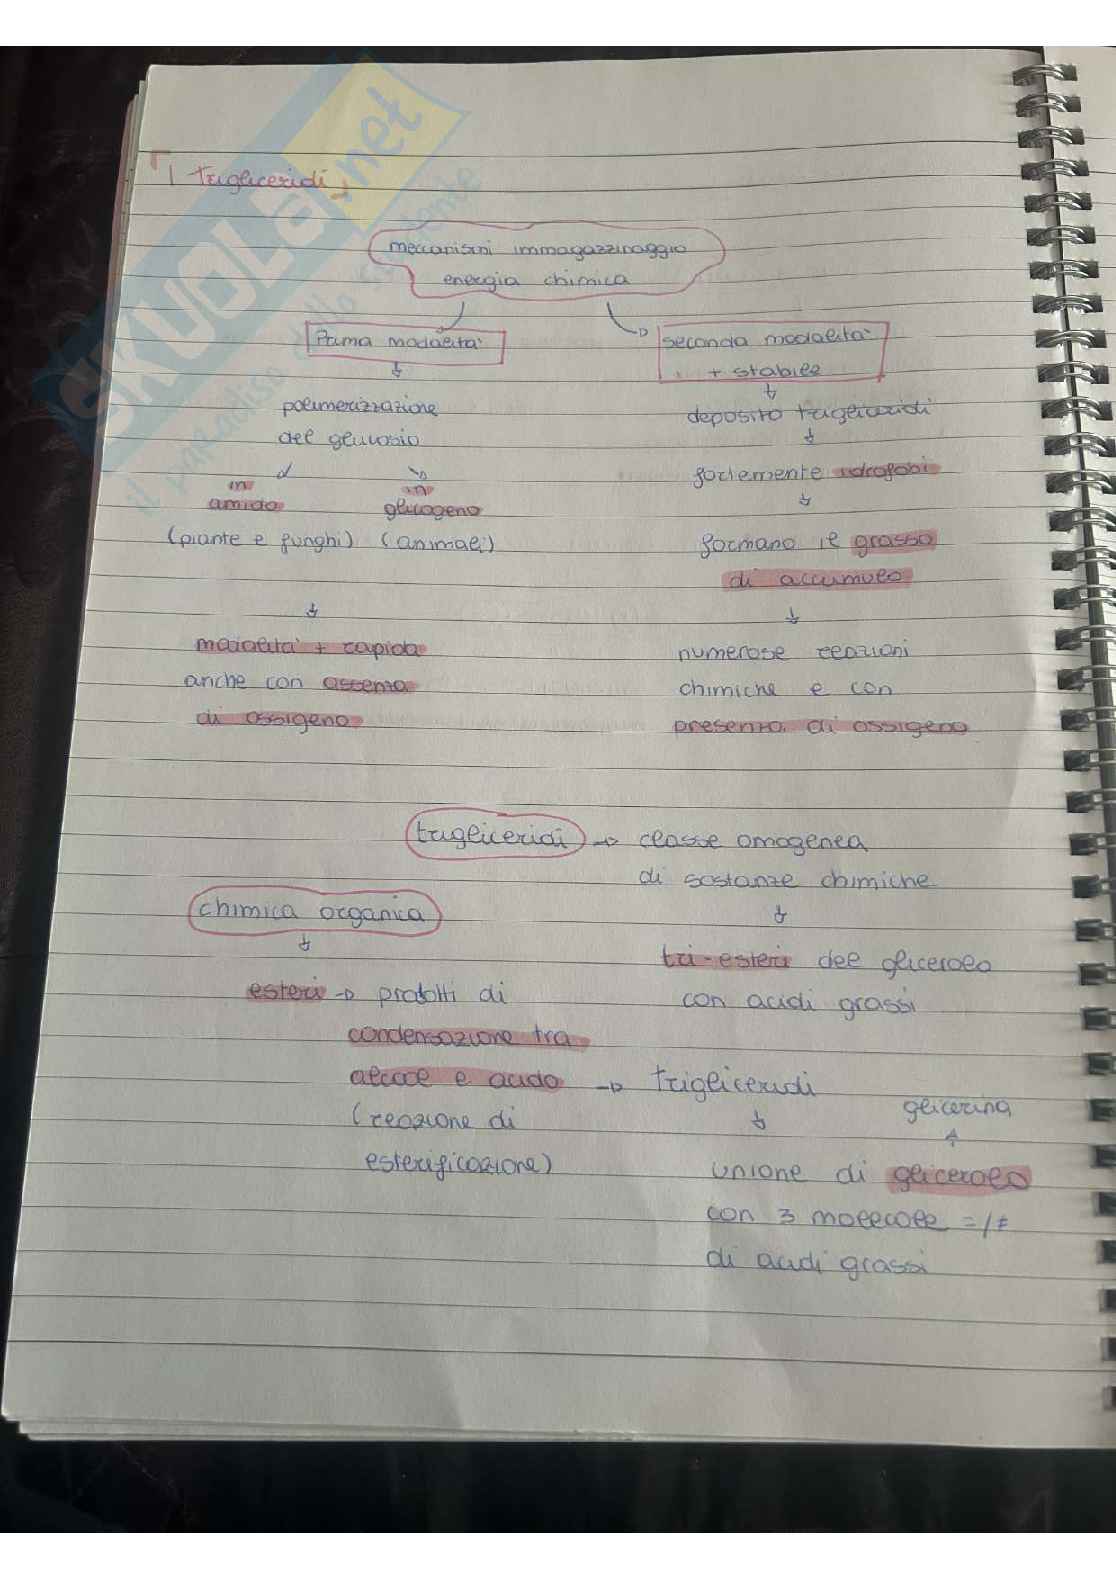 I trigliceridi
meccanismi immagazzinaggio
energia chimica
Prima modalità
polimerizzazione
del glucosio
in
amido
in
glicogeno
(piante e funghi) (animali)
modalità + rapida
anche con assenza
di ossigeno
seconda modalità
+ stabile
deposito trigliceridi
fortemente idrofobi
formano il grasso
di accumulo
numerose reazioni
chimiche e con
presenza di ossigeno
trigliceridi → classe omogenea
di sostanze chimiche
tri-esteri del glicerolo
con acidi grassi
chimica organica
esteri → prodotti di
condensazione tra
alcool e acido → trigliceridi
(reazione di
esterificazione)
glicerina
unione di glicerolo
con 3 molecole =/≠
di acidi grassi
SKUOLA.net
il paradiso dello studente